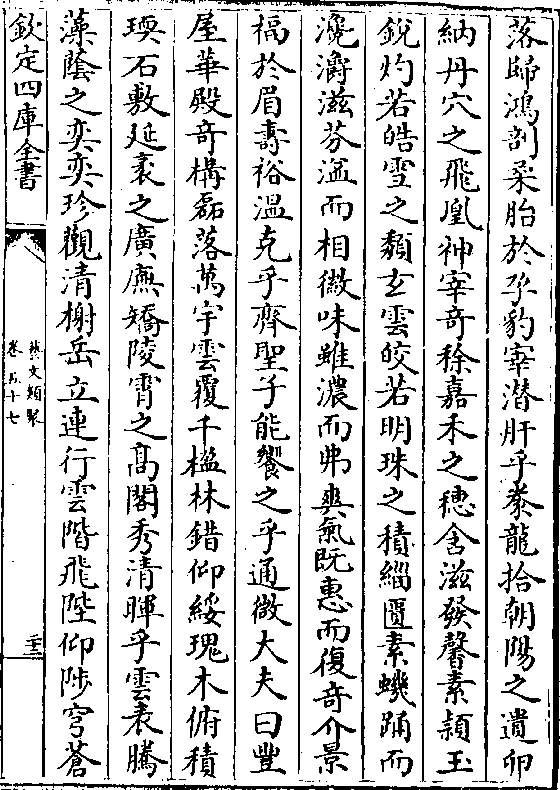 落歸鴻剖柔胎於孕豹宰潛肝乎豢龍拾朝陽之遺卵
納丹穴之飛凰神宰奇稌嘉禾之穗含滋發馨素穎玉
銳灼若皓雪之頹玄雲皎若明珠之積緇匱素蟣踊而
瀺灂滋芬溢而相徽味雖濃而弗爽氣既惠而復奇介景
福於眉壽裕溫克乎齊聖子能饗之乎通微大夫曰豐
屋華殿奇構磊落萬宇雲覆千楹林錯仰綏瑰木俯積
瑛石敷延袤之廣廡矯陵霄之高閣秀清暉乎雲表騰
藻蔭之奕奕珍觀清榭岳立連行雲階飛陛仰陟穹蒼
欽定四庫全書
藝文類聚
卷五十七
二十三